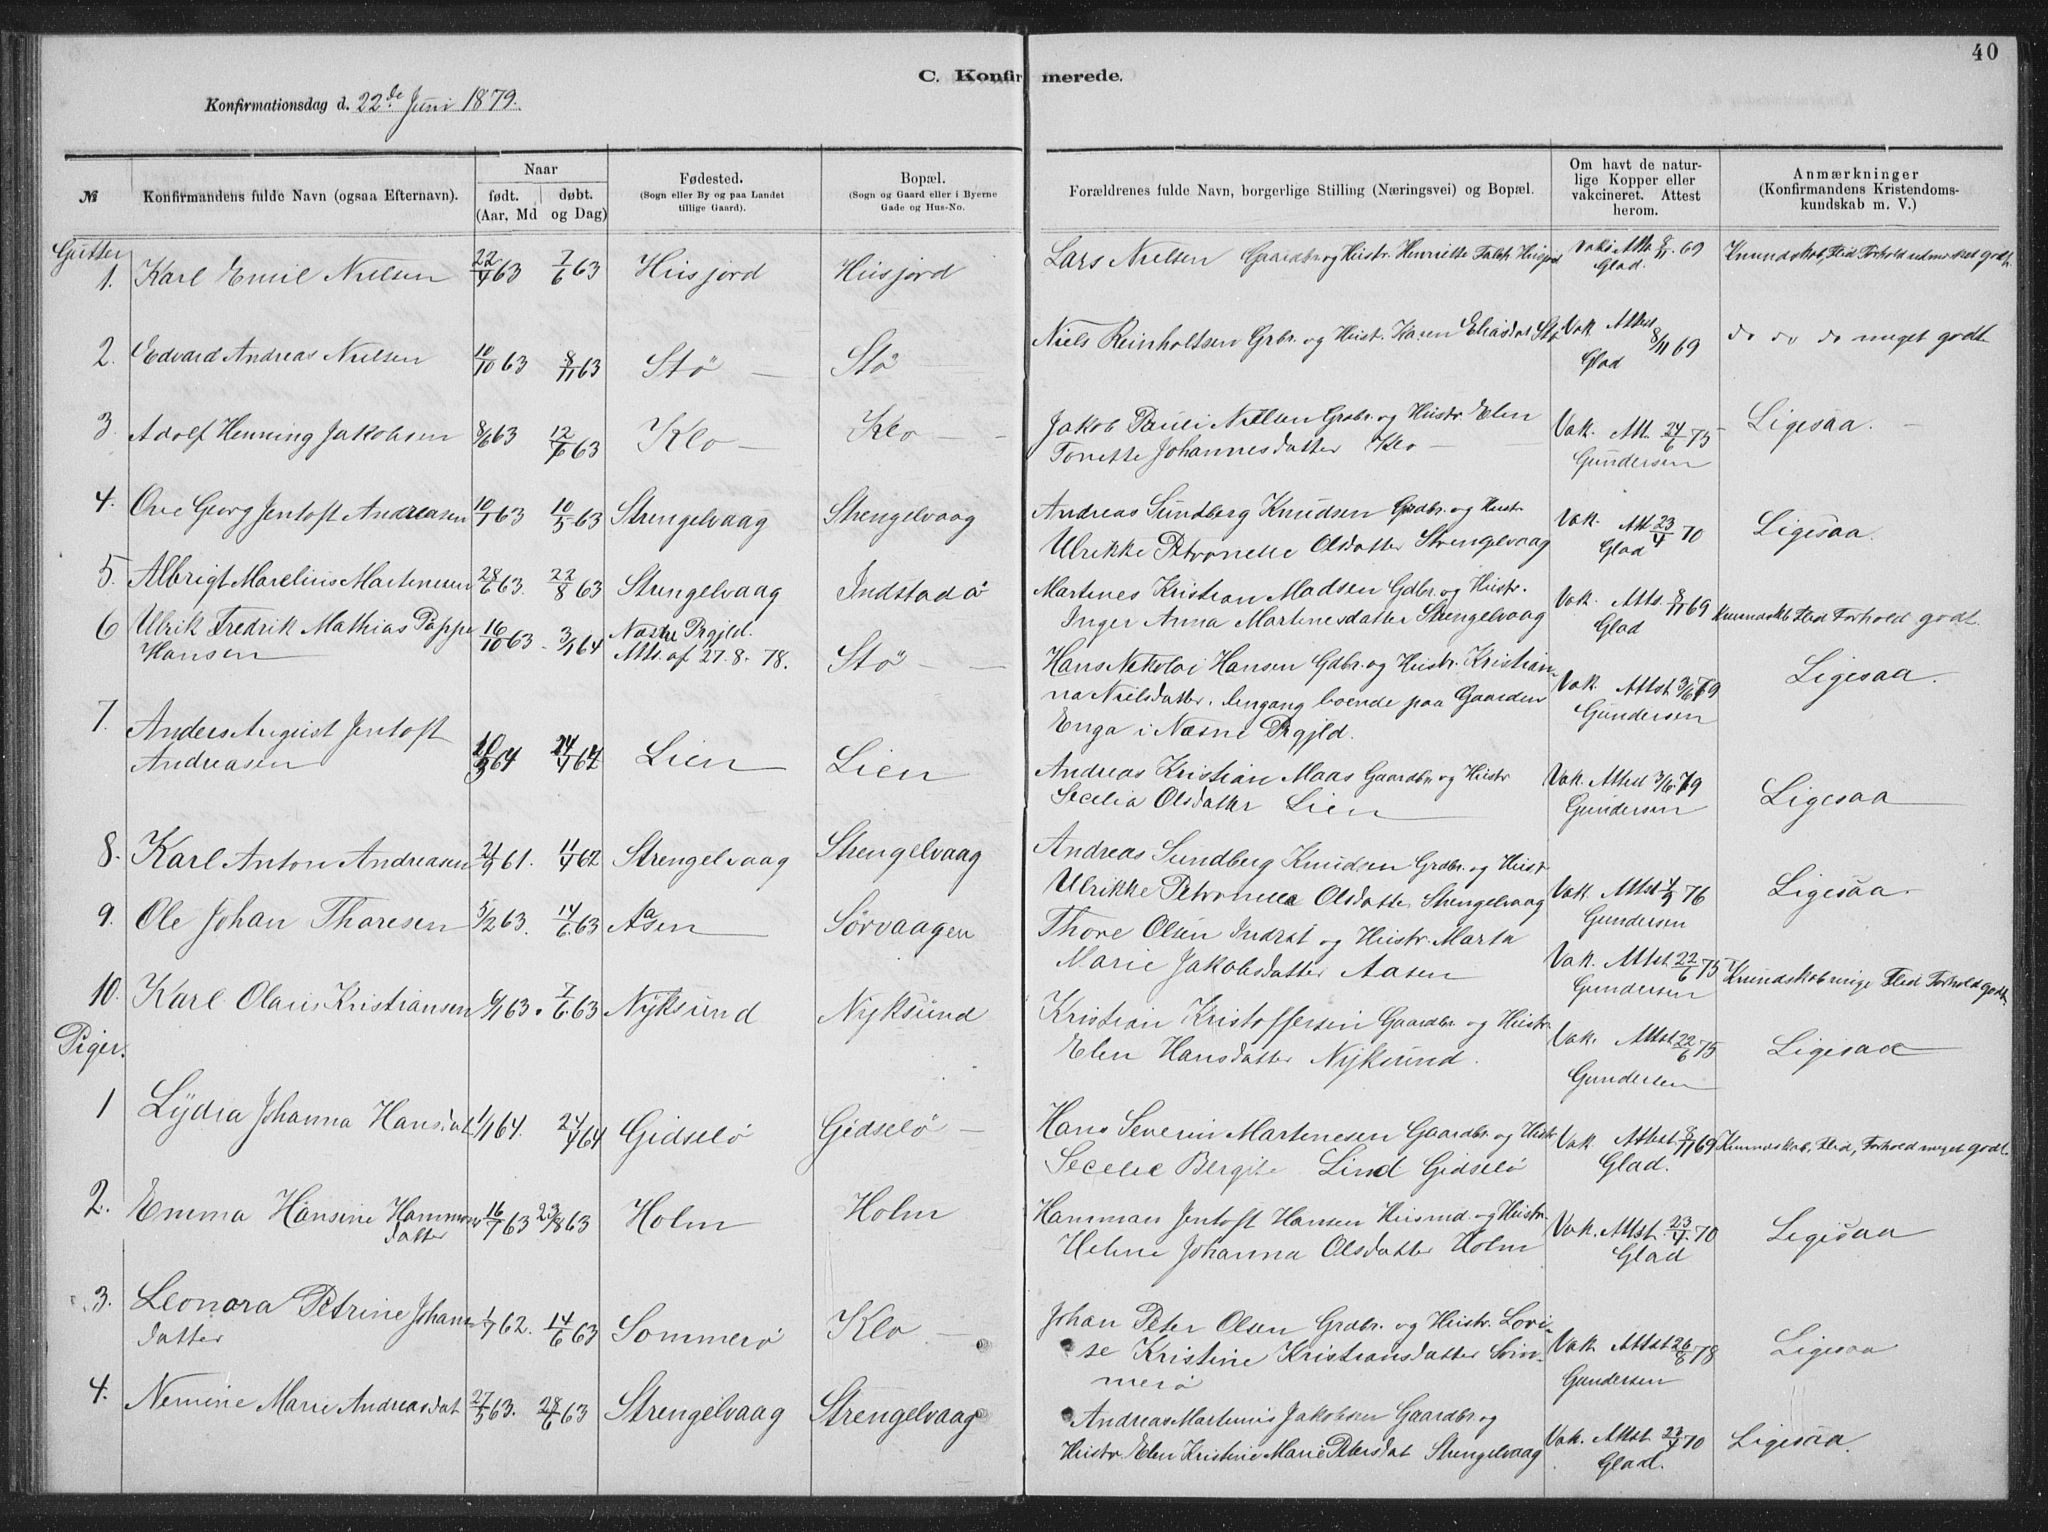 40
C. Konfirmerede.
Konfirmationsdag d. 22de Juni 1879.
№ Konfirmandens fulde Navn (ogsaa Efternavn). Naar født. døbt. (Aar, Md og Dag) Fødested. (Sogn eller By og paa Landet tillige Gaard). Bopæl. (Sogn og Gaard eller i Byerne Gade og Hus-No. Forældrenes fulde Navn, borgerlige Stilling (Næringsvei) og Bopæl. Om havt de naturlige Kopper eller vakcineret. Attest herom. Anmærkninger (Konfirmandens Kristendomskundskab m. V.)
Gutter
1. Karl Emil Nielsen 22/4 63 7/6 63 Husjord Husjord Lars Nielsen Gaardbr. og Hustr. Henriette Falch Husjord Vak. Att. 8/11 69
Glad. Kunndskab, Flid Forhold udmærket godt.
2. Edvard Andreas Nielsen 10/10 63 8/11 63 Stø — Stø — Niels Reinholtsen Grbr. og Hust. Karen Eliasdat Stø Vak Attest 8/11 69
Glad do do do meget godt
3. Adolf Henning Jakobsen 8/6 63 12/7 63 Klo — Klo — Jakob Pauli Nielsen Grdbr. og Hustr. Elen
Tonette Johannesdatter Klo — Vak. Att. 24/6 75
Gundersen Ligesaa. —
4. Ove Georg Jentoft Andreasen 10/1 63 10/5 63 Strengelvaag Strengelvaag Andreas Sundberg Knudsen Grdbr. og Hust.
Ulrikke Petronelle Olsdatter Strengelvaag Vak. Att 23/4 70
Glad Ligesaa.
5. Albrigt Marelius Martenesen 28/6 63. 22/8 63 Strengelvaag Indstadø Martenes Kristian Madsen Gdbr. og Hustr.
Inger Anna Martenesdatter Strengelvaag Vak. Atts. 8/11 69
Glad Kunndskb Flid Forhold godt.
6 Ulrik Fredrik Mathias Pappe
Hansen 16/10 63 3/1 64 Næsne Prgjld.
Atts. af 27. 8. 78. Stø — Hans Nekolai Hansen Gdbr. og Hustr. Kristian-
na Nielsdatter. Engang boende paa Gaarden
Enga i Næsne Prgjld. Vak. Attst 3/6 79
Gundersen Ligesaa.
7. Anders August Jentoft
Andreasen 20/3 64 24/4 64 Lien Lien Andreas Kristian Maas Gaardbr og Hustr
Secelia Olsdatter Lien Vak. Attest 3/6 79
Gundersen Ligesaa
8. Karl Anton Andreasen 21/9 61. 11/4 62 Strengelvaag Strengelvaag Andreas Sundberg Knudsen Grdbr. og Hustr
Ulrikke Petronella Olsdatter Strengelvaag Vak Attst 4/9 76
Gundersen Ligesaa.
9. Ole Johan Thoresen 5/2 63. 14/6 63 Aasen Sörvaagen Thore Olsen Indrst og Hustr. Marta
Marie Jakobsdatter Aasen Vak. Attst. 22/6 75
Gundersen Kunndskab minge Flid Forhold godt.
10. Karl Olaus Kristiansen 6/1 63. 7/6 63 Nyksund Nyksund Kristian Kristoffersen Gaardbr. og Hustr.
Elen Hansdatter Nyksund. Vak. Attst. 22/6 75
Gundersen Ligesaa
Piger.
1 Lydia Johanna Hansdat 1/1 64. 24/4 64 Gidselö Gidselö — Hans Severin Martenesen Gaardbr. og Hustr
Secelie Bergite Lind Gidselö Vak. Attest 8/11 69
Glad. Kunndskab, Flid, Forhold meget godt.
2. Emma Hansine Hammons
datter 16/7 63 23/8 63 Holm Holm Hamman Jentoft Hansen Husmd. og Hustr.
Helene Johanna Olsdatter Holm Vak. Attst. 23/4. 70
Glad Ligesaa
3. Leonora Petrine Johans
datter 1/7 62. 14/6 63 Sommerö Klo — Johan Peter Olsen Grdbr. og Hustr. Lovi-
se Kristine Kristiansdatter Som-
merö Vak Attst 26/8 78
Gundersen Ligesaa
4. Nemine Marie Andreasdat 27/5 63. 28/6 63 Strengelvaag Strengelvaag Andreas Martenus Jakobsen Gaardbr. og
Hustr. Elen Kristine Marie Petersdat Strengelvaag Vak. Attst. 23/4 70
Glad. Ligesaa.